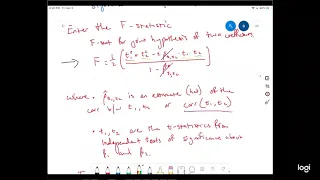 Enter the F-statistic
F-test for joint hypothesis of two coefficients
→ F = 1/2 ( t₁² + t₂² - 2 ρ̂t₁,t₂ · t₁ · t₂ / 1 - ρ̂²t₁,t₂ )
where • ρ̂t₁,t₂ is an estimate (hat) of the
corr b/w t₁, t₂ or corr(t₁, t₂)
• t₁, t₂ are the t-statistics from
independent tests of significance about
β₁ and β₂.
logi